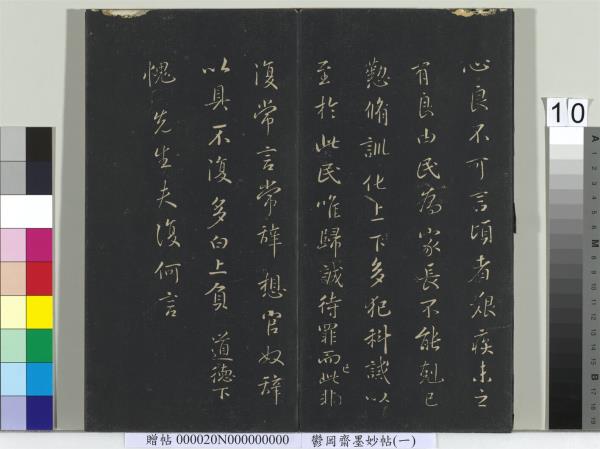 心良不可言頃者艱疾未之
有良由民為家長不能剋己
懃脩訓化上下多犯科誡以
至於此民唯歸誠待罪而已此非
復常言常辭想官奴辭
以具不復多白上負 道德下
愧 先生夫復何言
10
贈帖 000020N000000000 鬱岡齋墨妙帖(一)